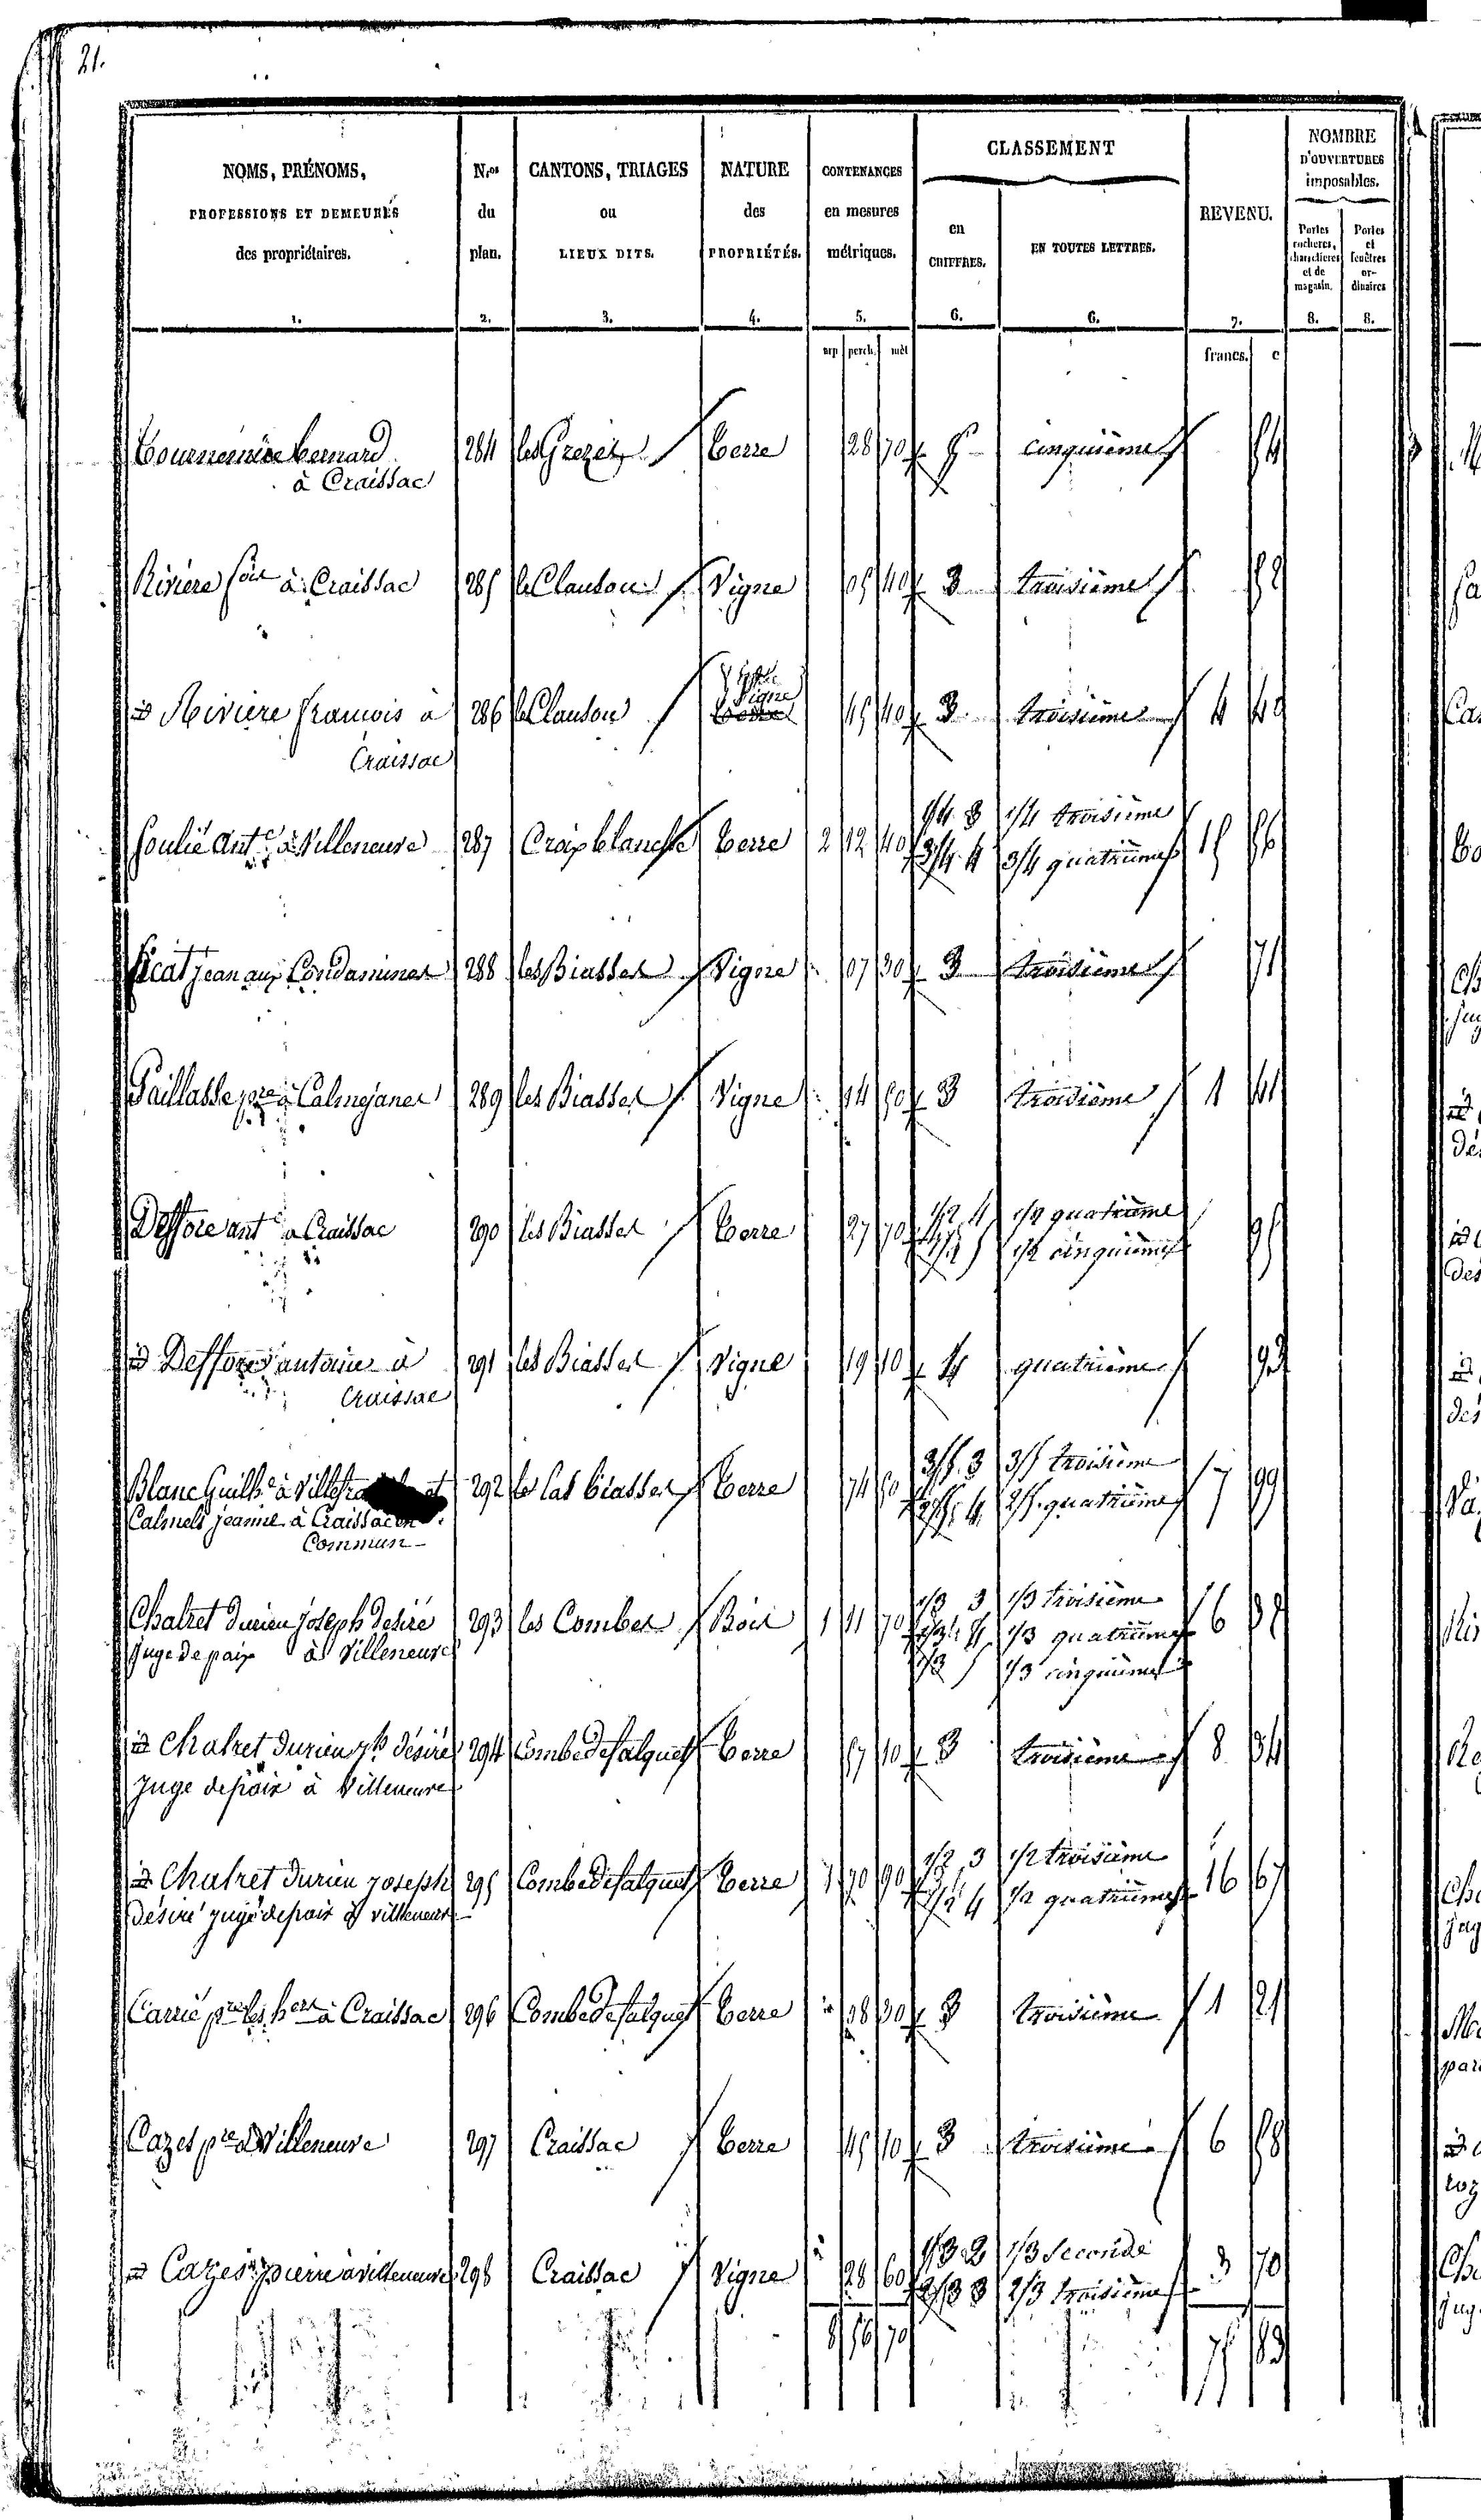 21.
NOMS, PRÉNOMS, PROFESSIONS ET DEMEURES des propriétaires. 1.
N.os du plan. 2.
CANTONS, TRIAGES ou LIEUX DITS. 3.
NATURE des PROPRIÉTÉS. 4.
CONTENANCES en mesures métriques. 5.
CLASSEMENT
en CHIFFRES. 6.
EN TOUTES LETTRES. 6.
REVENU. 7.
NOMBRE D'OUVERTURES imposables.
Portes cocheres, charretieres et de magasin. 8.
Portes et fenêtres ordinaires 8.
arp perch. mèt francs. c
bernard 284 les Grezes terre 28 70 5 cinquième 54
à Craissac
Rivière à Craissac 285 le Clausou Vigne 05 40 3 troisième 52
id Riviere francois à 286 le Clausou Vigne 45 40 3 troisième 4 40
Craissac
1/4 3 1/4 troisième
Soulié Ant.e à Villeneuve 287 Croix blanche terre 2 12 40 3/4 4 3/4 quatrième 15 56
Ficat jean aux Condamines 288 les Biasses Vigne 07 30 3 troisième 71
Paillasse p.re à Calmejanes 289 les Biasses Vigne 14 50 3 troisième 1 41
1/2 4 1/2 quatrième
Deffore ant.e à Craissac 290 les Biasses terre 27 70 1/2 5 1/2 cinquième 95
id Deffores antoine à 291 les Biasses Vigne 19 10 4 quatrième 93
Craissac
3/5 3 3/5 troisième
Blanc Guilh.e à et 292 biasses terre 74 60 2/5 4 2/5 quatrième 7 99
Calmels jeanne à Craissac en
Commun
1/3 3 1/3 troisième
Chalret Durieu joseph desiré 293 les Combes Bois 1 11 70 1/3 4 1/3 quatrième 6 32
juge de paix à Villeneuve 1/3 5 1/3 cinquième
id Chalret Durieu jph désiré 294 Combe de falquet terre 57 10 3 troisième 8 34
juge depaix à Villeneuve
1/2 3 1/2 troisième
id Chalret Durieu joseph 295 Combe de falquet terre 1 70 90 1/2 4 1/2 quatrième 16 67
désiré juge depaix à villeneuve
Carrié p.re les h.ers à Craissac 296 Combe de falquet terre 08 30 3 troisième 1 21
Cazes p.re à Villeneuve 297 Craissac terre 45 10 3 troisième 6 58
1/3 2 1/3 Seconde
id Cazes pierre à villeneuve 298 Craissac Vigne 28 60 2/3 3 2/3 troisième 3 70
8 56 70 75 83